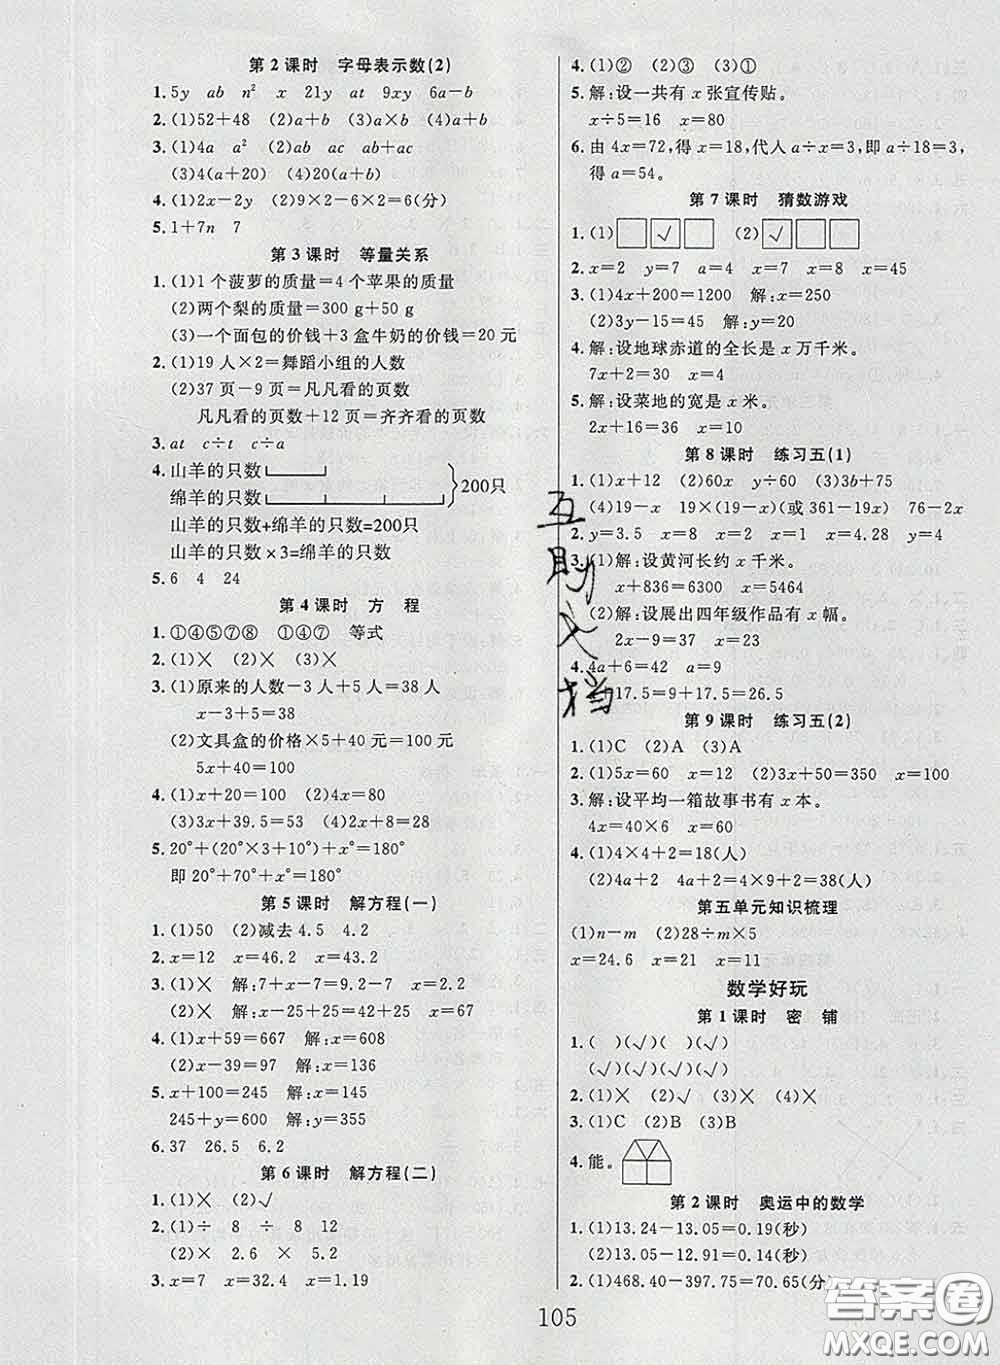 第2课时 字母表示数(2)
1.5y ab n² x 21y at 9xy 6a－b
2.(1)52＋48 (2)a＋b (3)a×b (4)a＋b
3.(1)4a a² (2)ab ac ab＋ac
(3)4(a＋20) (4)20(a＋b)
4.(1)2x－2y (2)9×2－6×2＝6(分)
5.1＋7n 7
第3课时 等量关系
1.(1)1个菠萝的质量＝4个苹果的质量
(2)两个梨的质量＝300 g＋50 g
(3)一个面包的价钱＋3盒牛奶的价钱＝20元
2.(1)19人×2＝舞蹈小组的人数
(2)37页－9页＝凡凡看的页数
凡凡看的页数＋12页＝齐齐看的页数
3.at c÷t c÷a
4.山羊的只数
绵羊的只数
200只
山羊的只数+绵羊的只数=200只
山羊的只数×3=绵羊的只数
5.6 4 24
第4课时 方 程
1.①④⑤⑦⑧ ①④⑦ 等式
2.(1)× (2)× (3)×
3.(1)原来的人数－3人＋5人＝38人
x－3＋5＝38
(2)文具盒的价格×5＋40元＝100元
5x＋40＝100
4.(1)x＋20＝50 (2)4x＝80
(3)3x＋39.5＝53 (4)2x＋8＝28
5.20°＋(20°×3＋10°)＋x°＝180°
即20°＋70°＋x°＝180°
第5课时 解方程(一)
1.(1)50 (2)减去4.5 4.2
2.x＝12 x＝46.2 x＝43.2
3.(1)× 解:7＋x－7＝9.2－7 x＝2.2
(2)× 解:x－25＋25＝42＋25 x＝67
4.(1)x＋59＝667 解:x＝608
(2)x－39＝97 解:x＝136
5.x＋100＝245 解:x＝145
245＋y＝600 解:y＝355
6.37 26.5 6.2
第6课时 解方程(二)
1.(1)× (2)√
2.(1)÷ 8 ÷ 8 12
(2)× 2.6 × 2.6
3.x＝7 x＝32.4 x＝1.19
4.(1)② (2)③ (3)①
5.解:设一共有x张宣传贴。
x÷5＝16 x＝80
6.由4x＝72,得x＝18,代人a÷x＝3,即a÷18＝3,
得a＝54。
第7课时 猜数游戏
1.(1) √ (2) √
2.x＝2 y＝7 a＝4 x＝7 x＝8 x＝45
3.(1)4x＋200＝1200 解:x＝250
(2)3y－15＝45 解:y＝20
4.解:设地球赤道的全长是x万千米。
7x＋2＝30 x＝4
5.解:设菜地的宽是x米。
2x＋16＝36 x＝10
第8课时 练习五(1)
1.(1)x＋12 (2)60x y÷60 (3)3b＋75
(4)19－x 19×(19－x)(或361－19x) 76－2x
2.y＝3.5 x＝8 x＝2 x＝1 x＝4.28 y＝4
3.(1)解:设黄河长约x千米。
x＋836＝6300 x＝5464
(2)解:设展出四年级作品有x幅。
2x－9＝37 x＝23
4.4a＋6＝42 a＝9
17.5＝9＋17.5＝26.5
第9课时 练习五(2)
1.(1)C (2)A (3)A
2.(1)5x＝60 x＝12 (2)3x＋50＝350 x＝100
3.解:设平均一箱故事书有x本。
4x＝40×6 x＝60
4.(1)4×4＋2＝18(人)
(2)4a＋2 4a＋2＝4×9＋2＝38(人)
第五单元知识梳理
(1)n－m (2)28÷m×5
x＝24.6 x＝21 x＝11
数学好玩
第1课时 密 铺
1.( )(√)(√) (√)
(√)(√)(√)(√)
2.(1)× (2)√ (3)× (4)×
3.(1)C (2)B (3)B
4.能。
第2课时 奥运中的数学
1.(1)13.24－13.05＝0.19(秒)
(2)13.05－12.91＝0.14(秒)
2.(1)468.40－397.75＝70.65(分)
105
答案圈
MXQE.COM